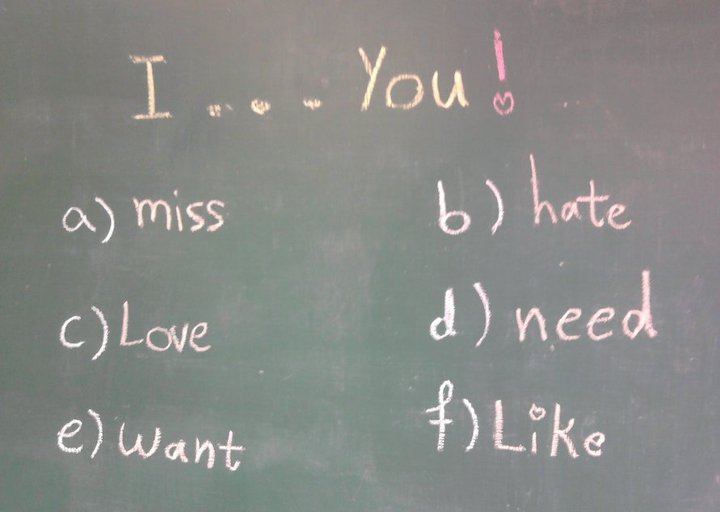 I ... You!
a) miss b) hate
c) Love d) need
e) want f) Like